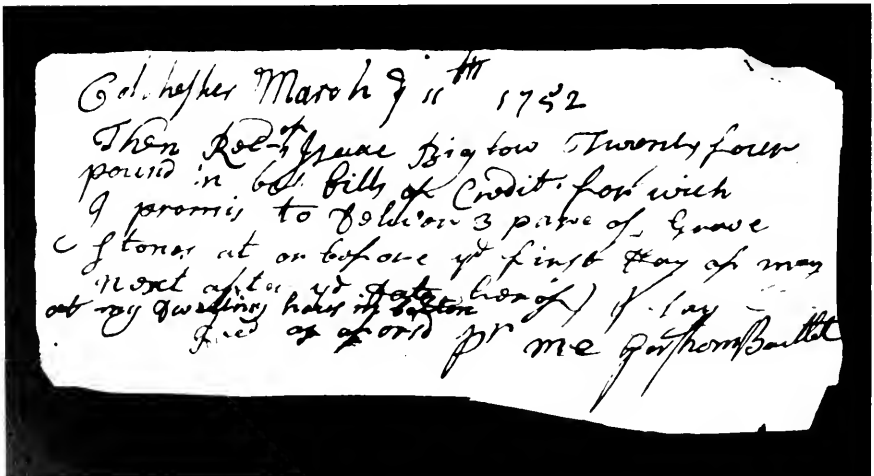 Colchester March ye 11th 1752
Then Recd of Isaac Bigelow Twenty fower
pound in bills of Credit for wich
I promis to Deliver 3 pare of Grave
Stones at or before ye first Day of may
next after ye Date herof
at my Dwelling hous in bolton
as aforsd
pr me Gershom Bartlet